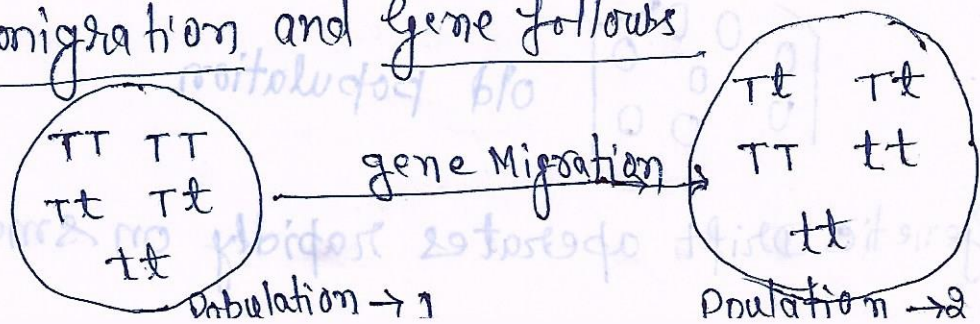 migration and Gene follows
TT TT
Tt Tt
tt
gene Migration
Tt Tt
TT tt
tt
Pobulation → 1
Poulation → 2